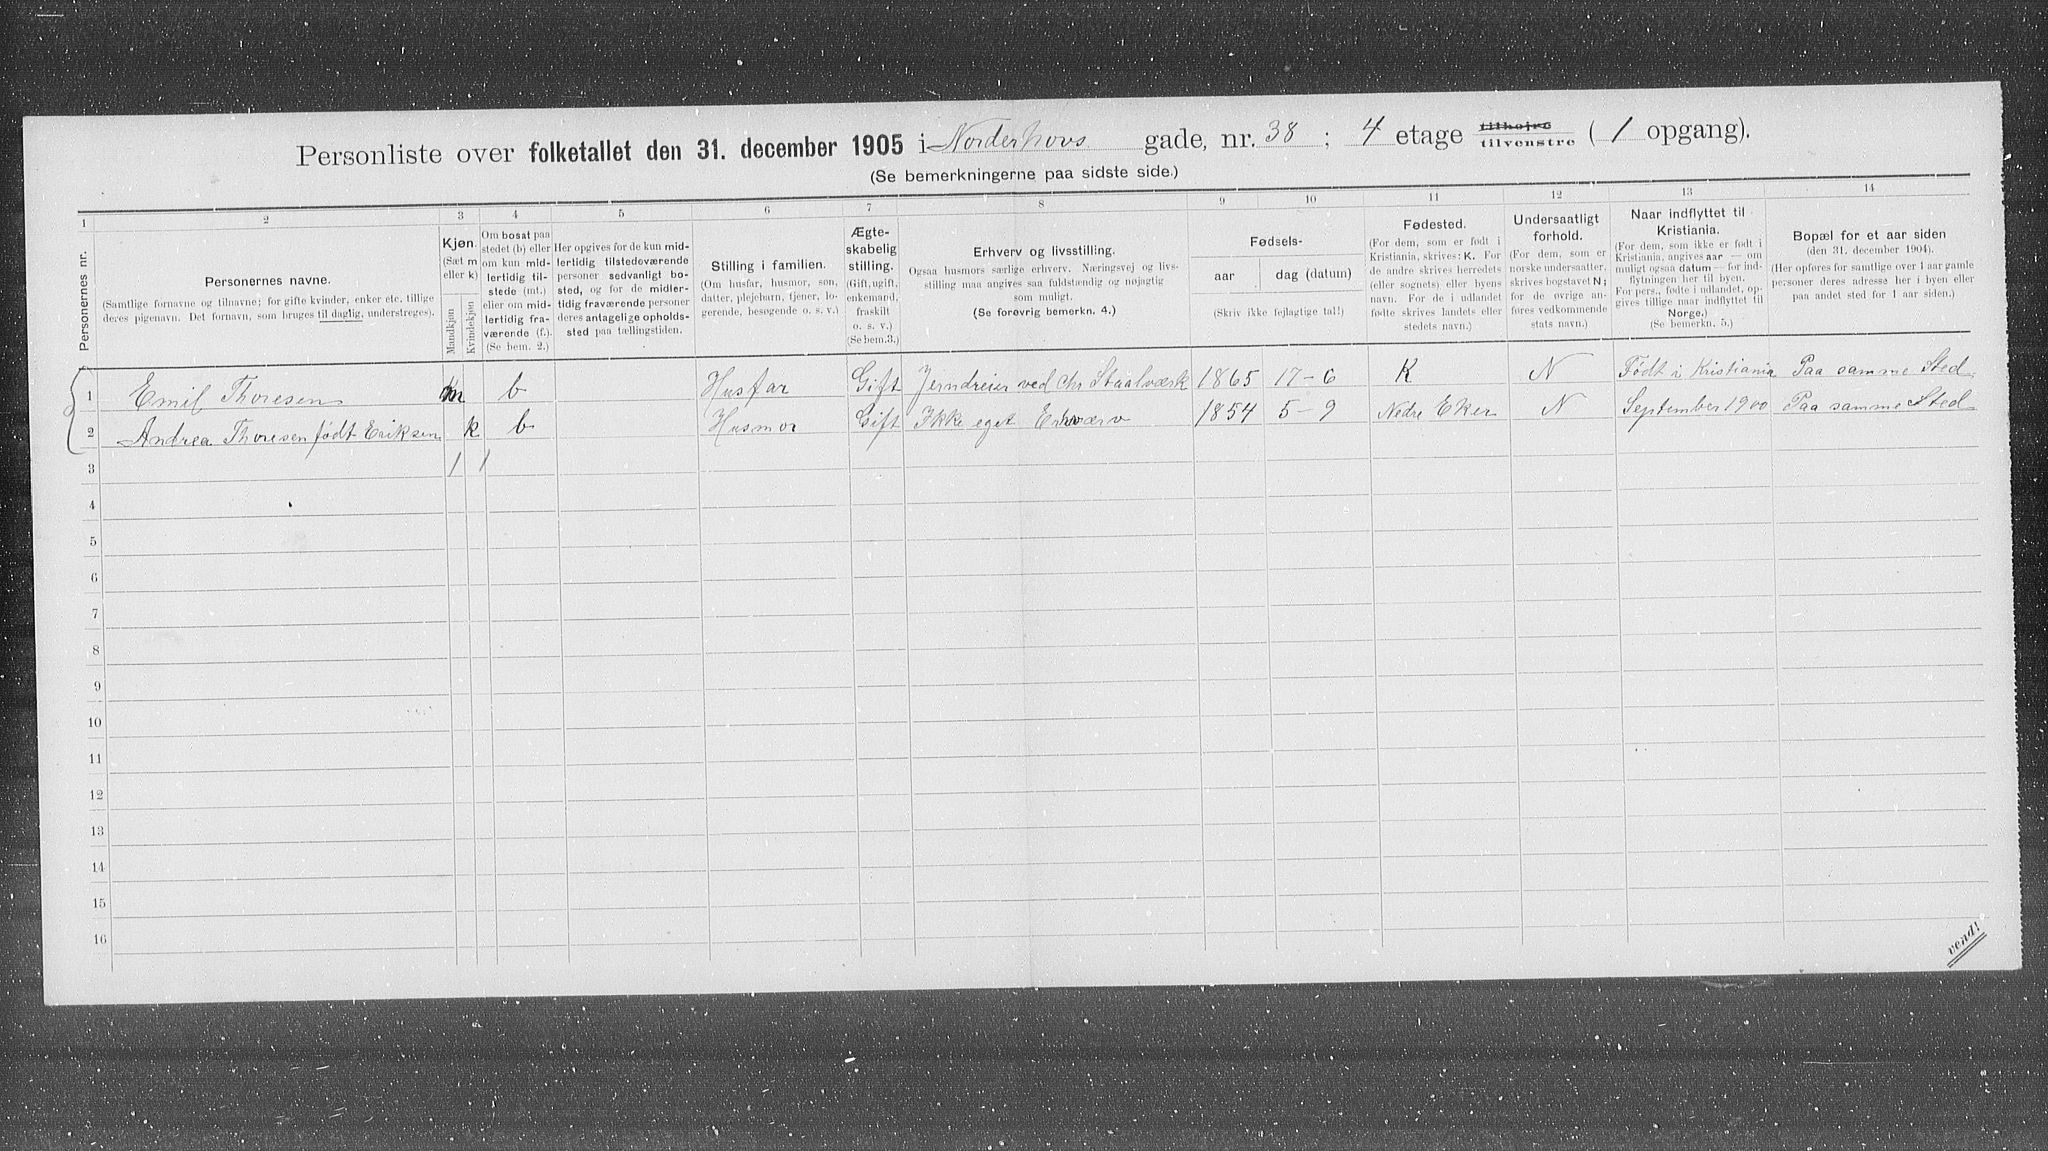 Personliste over folketallet den 31. december 1905 i Norderhovs gade, nr. 38 ; 4 etage tilhøjre tilvenstre ( 1 opgang).
(Se bemerkningerne paa sidste side.)
1 2 3 4 5 6 7 8 9 10 11 12 13 14
Personernes nr.
Personernes navne.
(Samtlige fornavne og tilnavne; for gifte kvinder, enker etc. tillige
deres pigenavn. Det fornavn, som bruges til daglig, understreges).
Kjøn.
(Sæt m
eller k)
Mandkjøn
Kvindekjøn
Om bosat paa
stedet (b) eller
om kun mid-
lertidig til-
stede (mt.)
eller om mid-
lertidig fra-
værende (f.).
(Se bem. 2.)
Her opgives for de kun mid-
lertidig tilstedeværende
personer sedvanligt bo-
sted, og for de midler-
tidig fraværende personer
deres antagelige opholds-
sted paa tællingstiden.
Stilling i familien.
(Om husfar, husmor, søn,
datter, plejebarn, tjener, lo-
gerende, besøgende o. s. v.)
Ægte-
skabelig
stilling.
(Gift, ugift,
enkemand,
fraskilt
o. s. v.)
(Se bem.3.)
Erhverv og livsstilling.
Ogsaa husmors særlige erhverv. Næringsvej og livs-
stilling maa angives saa fuldstændig og nøjagtig
som muligt.
(Se forøvrig bemerkn. 4.)
Fødsels-
aar
dag (datum)
(Skriv ikke fejlagtige tal!)
Fødested.
(For dem, som er født i
Kristiania, skrives: K. For
de andre skrives herredets
(eller sognets) eller byens
navn. For de i udlandet
fødte skrives landets eller
stedets navn.)
Undersaatligt
forhold.
(For dem, som er
norske undersaatter,
skrives bogstavet N;
for de øvrige an-
føres vedkommende
stats navn.)
Naar indflyttet til
Kristiania.
(For dem, som ikke er født i
Kristiania, angives aar — om
muligt ogsaa datum — for ind-
flytningen her til byen.
For pers., fødte i udlandet, op-
gives tillige naar indflyttet til
Norge.)
(Se bemerkn. 5.)
Bopæl for et aar siden
(den 31. december 1904).
(Her opføres for samtlige over 1 aar gamle
personer deres adresse her i byen eller
paa andet sted for 1 aar siden.)
1 Emil Thoresen m b Husfar Gift Jerndreier ved Chr Staalværk 1865 17-6 K N Født i Kristiania Paa samme Sted
2 Andrea Thoresen født Eriksen k b Husmor Gift Ikke eget Erhværv 1854 5-9 Nedre Eker N September 1900 Paa samme Sted
3 1 1
4
5
6
7
8
9
10
11
12
13
14
15
16
vend!